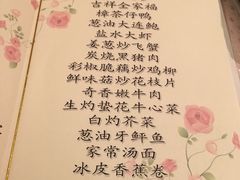 吉祥全家福
樟茶仔鸭
葱油大连鲍
盐水大虾
姜葱炒飞蟹
炭烧黑猪肉
彩椒脆藕炒鸡柳
鲜味菇炒花枝片
奇香嫩牛肉
生灼垫花牛心菜
白灼芥菜
葱油牙鲆鱼
家常汤面
冰皮香蕉卷